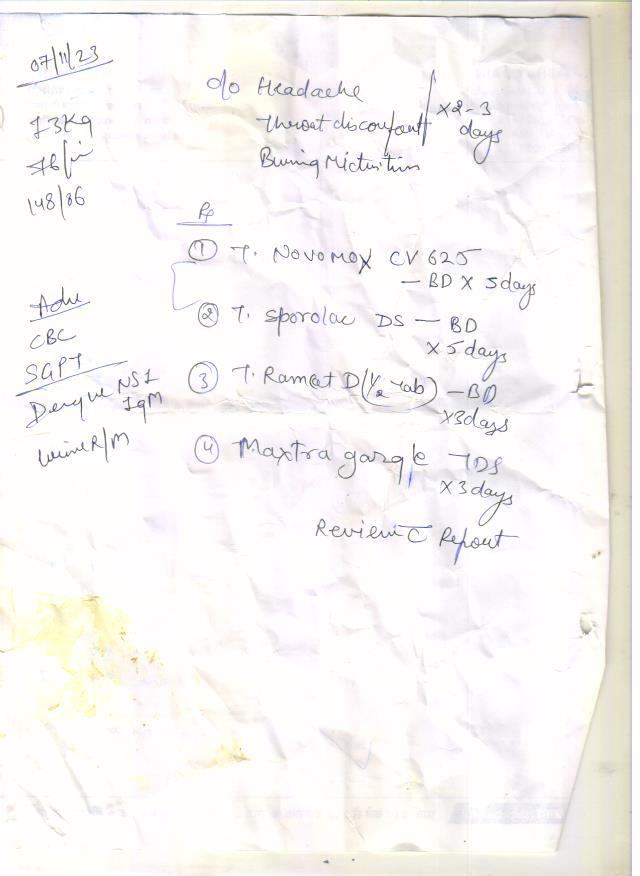 07/11/23
73Kg
76/min
148/86
c/o Headache
Throat discomfort
Burning Micturition
x2-3
days
Rx
① T. Novomox CV 625
— BD x 5days
② T. Sporolac DS — BD
x 5days
③ T. (1/2 tab) — BD
x3days
④ Maxtra gargle TDS
x 3days
Review c̄ Report
Adv
CBC
SGPT
Dengue NS1
IgM
Urine R/M